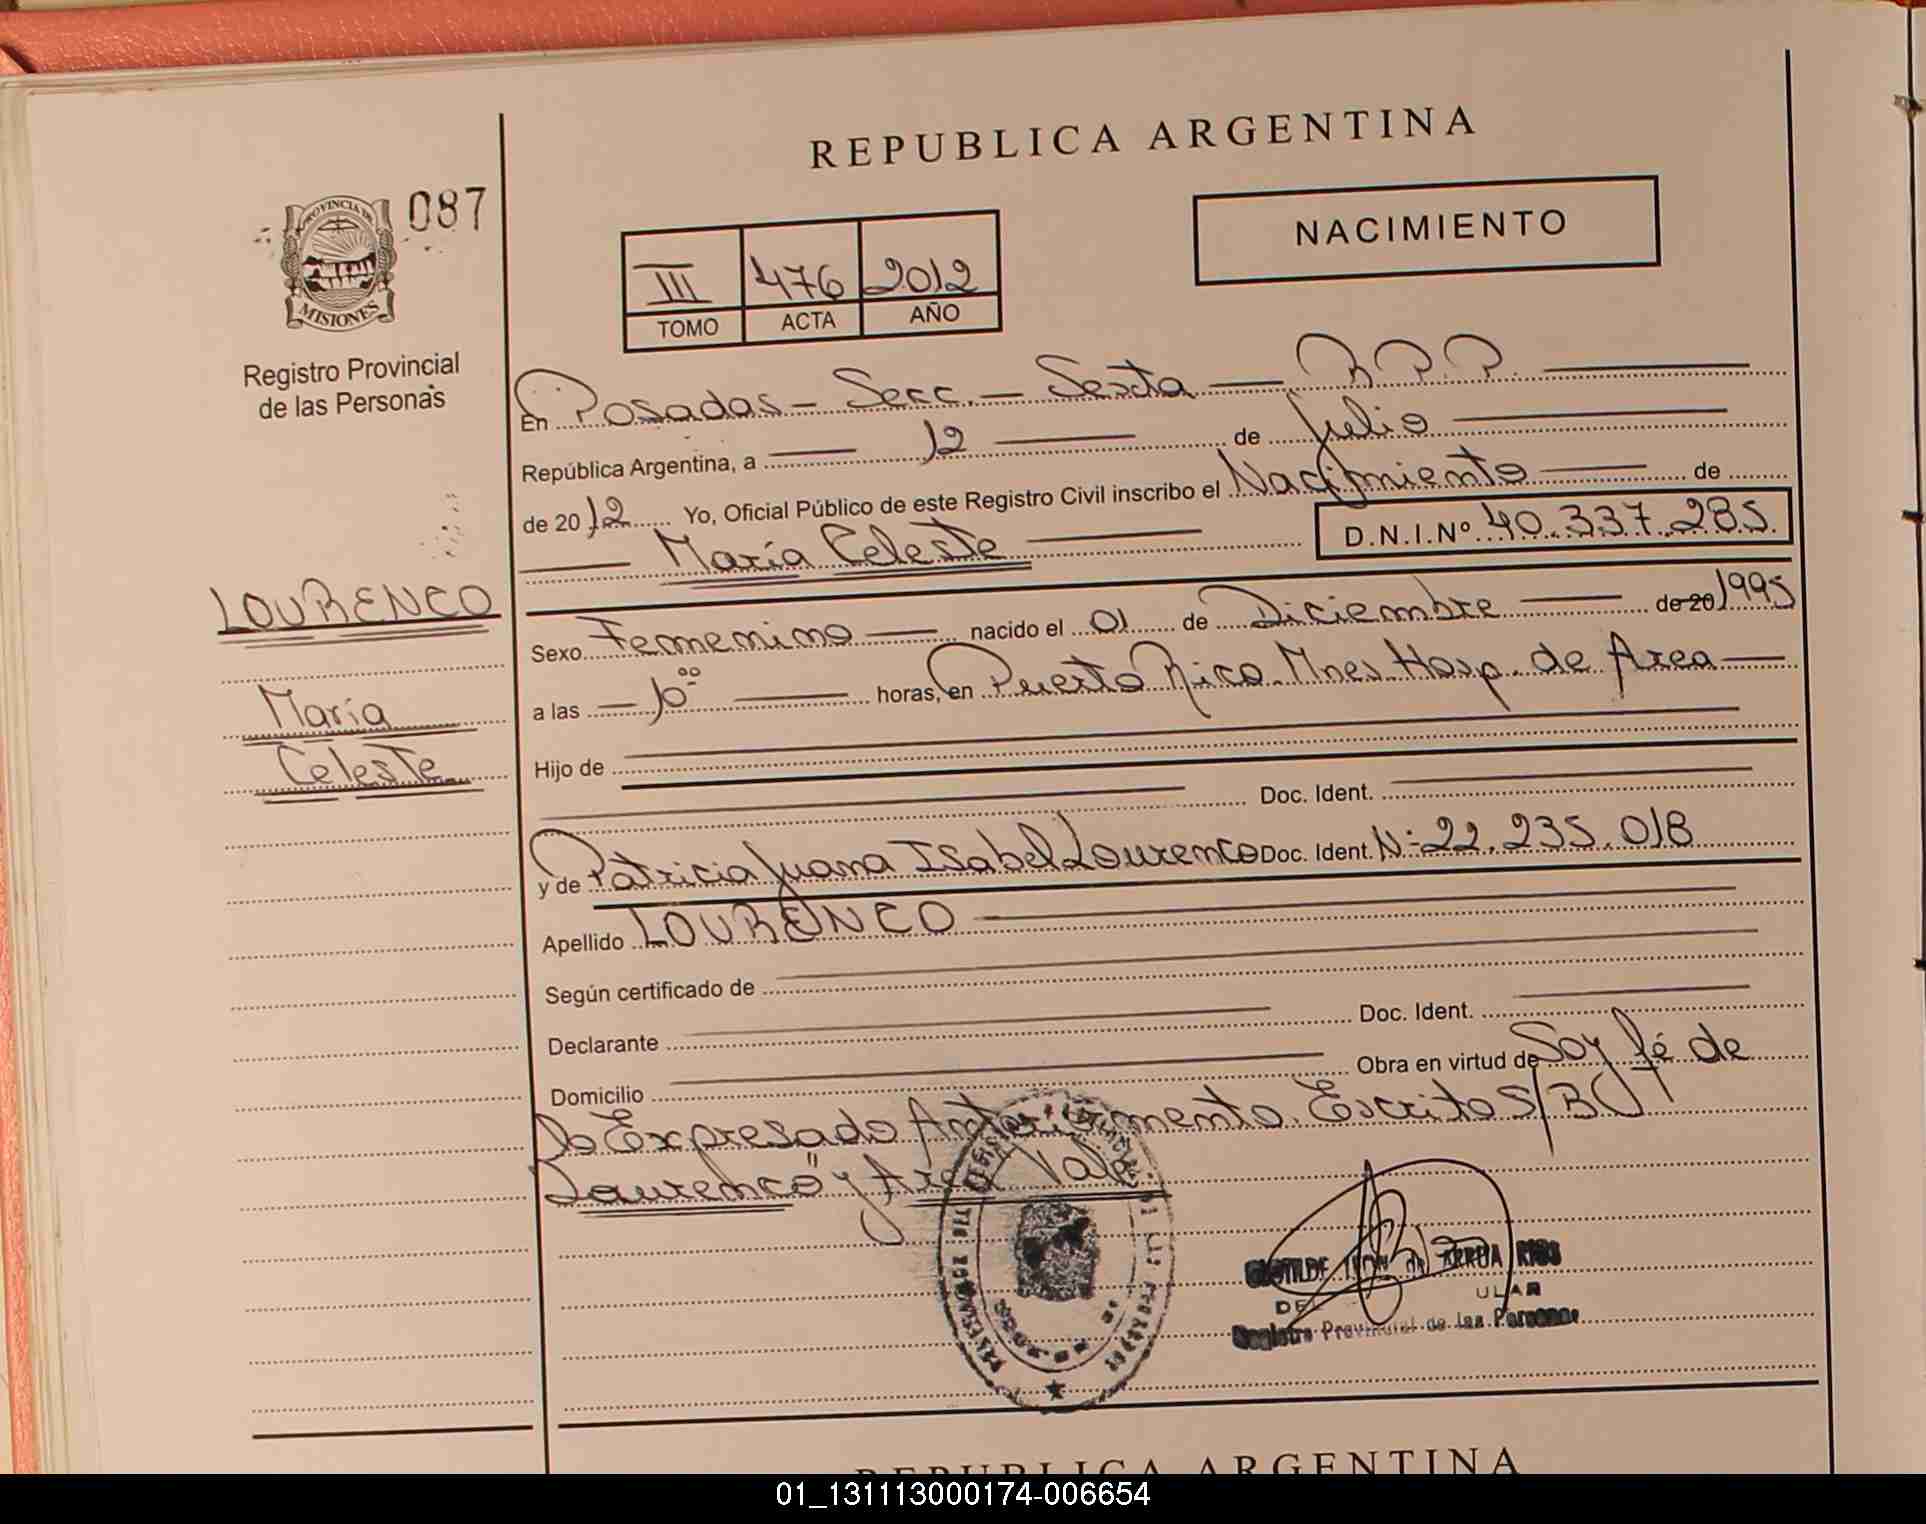 REPUBLICA ARGENTINA
087
PROVINCIA DE
MISIONES
NACIMIENTO
III 476 2012
TOMO ACTA AÑO
Registro Provincial
de las Personas
En Posadas - Secc. - Sexta - R.P.P.
República Argentina, a 12 de Julio
de 2012 Yo, Oficial Público de este Registro Civil inscribo el Nacimiento de
María Celeste D.N.I.Nº 40.337.285.
LOURENCO
María
Celeste
Sexo Femenino nacido el 01 de Diciembre de 20 1995
a las 10°° horas, en Puerto Rico. Mnes Hosp. de Area
Hijo de
Doc. Ident.
y de Patricia Juana Isabel Lourenco Doc. Ident. Nº 22.235.018
Apellido LOURENCO
Según certificado de
Declarante Doc. Ident.
Domicilio Obra en virtud de Doy fé de
lo Expresado Anteriormente. Escrito S/B
Lourenco" y Area Vale
ARRUA RIOS
Registro Provincial de las Personas
REPUBLICA ARGENTINA
01_131113000174-006654